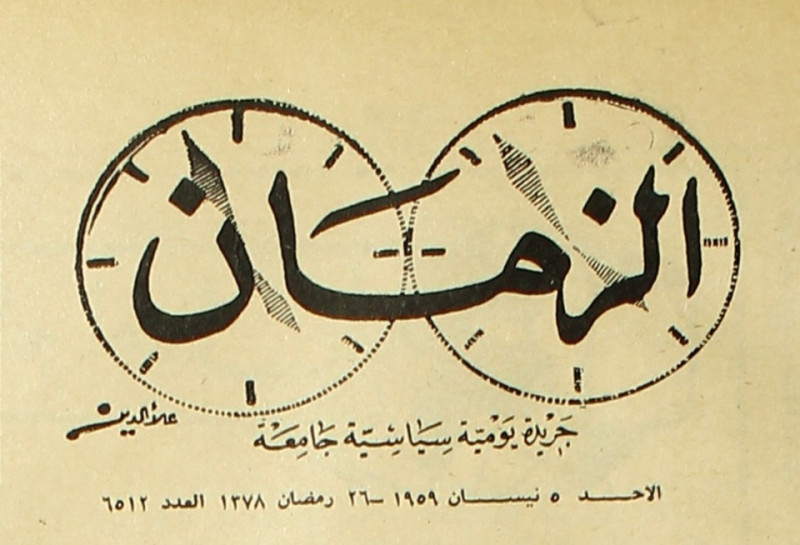 الزمان
علاءالدين
جَرْيدة يَوْميّة سِيَاسِيّة جَامِعَة
الاحـــد ٥ نيســـان ١٩٥٩ –٢٦ رمضان ١٣٧٨ العدد ٦٥١٢